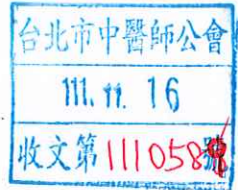 台北市中醫師公會
111. 11. 16
收文第111058號